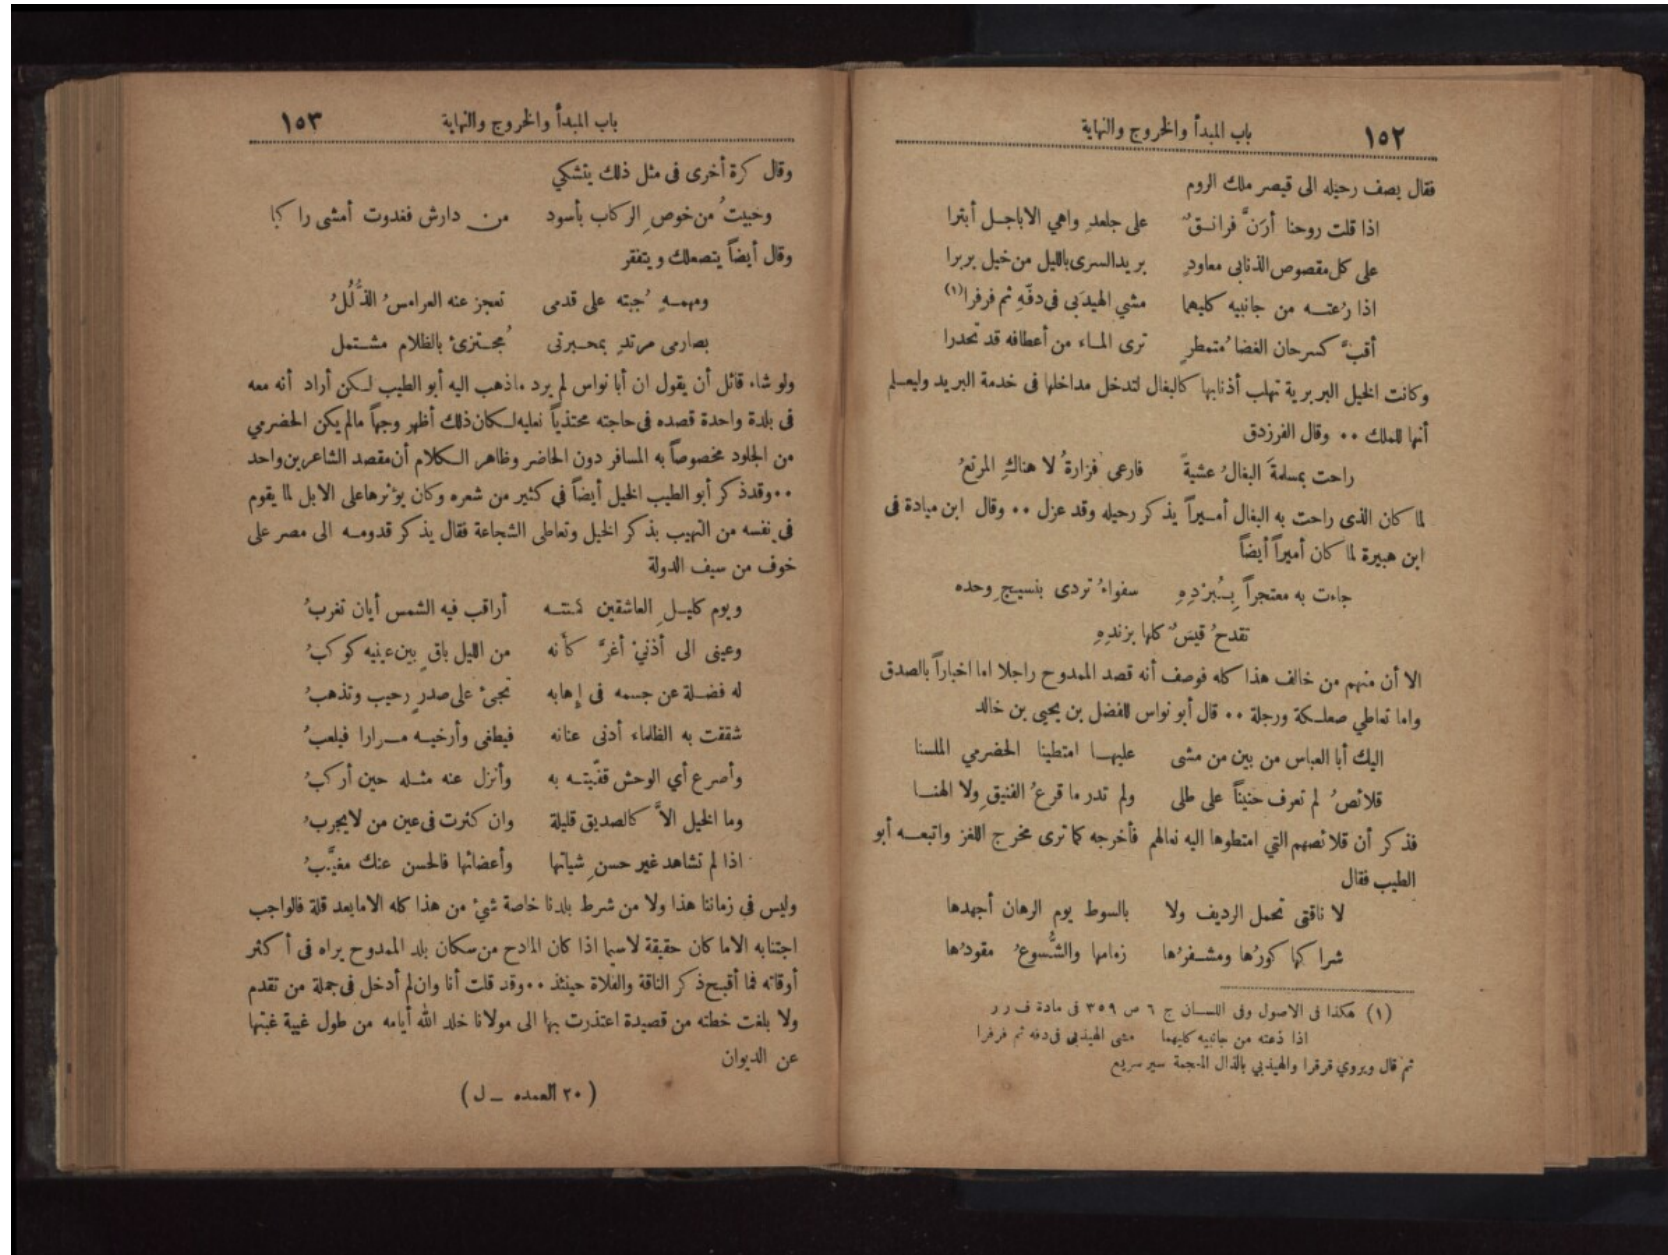 ١٥٢
باب المبدأ والخروج والنهاية
فقال يصف رحيله الى قيصر ملك الروم
اذا قلت روحنا أرَنَّ فرانـقٌ على جلعدٍ واهي الاباجـل أبترا
على كل مقصوص الذنابى معاودٍ بريد السرى بالليل من خيل بربرا
اذا رُعتـه من جانبيه كليهما مشي الهيدَبى فى دفّهِ ثم فرفرا(١)
أقبَّ كسرحان الغضا مُتمطرٍ ترى المـاء من أعطافه قد تحدرا
وكانت الخيل البربرية تهلب أذنابها كالبغال لتدخل مداخلها فى خدمة البريد وليعـلم
أنها للملك ٠٠ وقال الفرزدق
راحت بمسلمةَ البغالُ عشيةً فارعى فزارةُ لا هناكِ المرتعُ
لما كان الذى راحت به البغال أمـيراً يذكر رحيله وقد عزل ٠٠ وقال ابن ميادة فى
ابن هبيرة لما كان أميراً أيضاً
جاءت به معتجراً بِـبُرْدِهِ سفواءُ تردى بنسيـج وحده
تقدحُ قيسٌ كلها بزندِهِ
الا أن منهم من خالف هذا كله فوصف أنه قصد الممدوح راجلا اما اخباراً بالصدق
واما تعاطي صعلـكة ورجلة ٠٠ قال أبو نواس للفضل بن يحيى بن خالد
اليك أبا العباس من بين من مشى عليهـا امتطينا الحضرمي الملسنا
قلائصُ لم تعرف حنيناً على طلى ولم تدر ما قرعُ الفنيق ولا الهنـا
فذكر أن قلائصهم التي امتطوها اليه نعالهم فأخرجه كما ترى مخرج اللغز واتبعـه أبو
الطيب فقال
لا ناقتى تحمل الرديف ولا بالسوط يوم الرهان أجهدها
شراكها كورُها ومشـفرُها زمامها والشُّسوعُ مقودُها
(١) هكذا فى الاصول وفى اللسـان ج ٦ ص ٣٥٩ فى مادة ف ر ر
اذا ذعته من جانبيه كليهما مشى الهيذبى فى دفه ثم فرفرا
ثم قال ويروي قرقرا والهيذبي بالذال المعجمة سير سريع
باب المبدأ والخروج والنهاية
١٥٣
وقال كرة أخرى فى مثل ذلك يتشكي
وحُبيتُ من خوصِ الركاب بأسود من دارش فغدوت أمشى راكبا
وقال أيضاً يتصعلك ويتفقر
ومهمـهٍ جُبته على قدمى تعجز عنه العرامسُ الذُّلُلُ
بصارمى مرتدٍ بمخـبرتى مُجـتزئ بالظلام مشـتمل
ولو شاء قائل أن يقول ان أبا نواس لم يرد ماذهب اليه أبو الطيب لـكن أراد أنه معه
فى بلدة واحدة قصده فى حاجته محتذياً نعليه لـكان ذلك أظهر وجهاً مالم يكن الحضرمي
من الجلود مخصوصاً به المسافر دون الحاضر وظاهر الـكلام أن مقصد الشاعرين واحد
٠٠ وقد ذكر أبو الطيب الخيل أيضاً في كثير من شعره وكان يؤثرها على الابل لما يقوم
فى نفسه من التهيب بذكر الخيل وتعاطى الشجاعة فقال يذكر قدومـه الى مصر على
خوف من سيف الدولة
ويوم كليـلِ العاشقين كمنتـه أراقب فيه الشمس أيان تغربُ
وعينى الى أذنيْ أغرَّ كأنه من الليل باقٍ بين عينيه كوكبُ
له فضـلة عن جسمه فى إِهابه تجىئ على صدرٍ رحيب وتذهبُ
شققت به الظلماء أدنى عنانه فيطغى وأرخيـه مـرارا فيلعبُ
وأصرع أي الوحش قفّيتـه به وأنزل عنه مثـله حين أركبُ
وما الخيل الاَّ كالصديق قليلة وان كثرت فى عين من لايجربُ
اذا لم تشاهد غير حسنِ شياتها وأعضائها فالحسن عنك مغيَّبُ
وليس فى زماننا هذا ولا من شرط بلدنا خاصة شئ من هذا كله الا مايعد قلة فالواجب
اجتنابه الا ما كان حقيقة لاسيما اذا كان المادح من سكان بلد الممدوح يراه فى أكثر
أوقاته فما أقبح ذكر الناقة والفلاة حينئذ ٠٠ وقد قلت أنا وان لم أدخل فى جملة من تقدم
ولا بلغت خطته من قصيدة اعتذرت بها الى مولانا خلد الله أيامه من طول غيبة غبتها
عن الديوان
( ٢٠ العمده ـ ل )